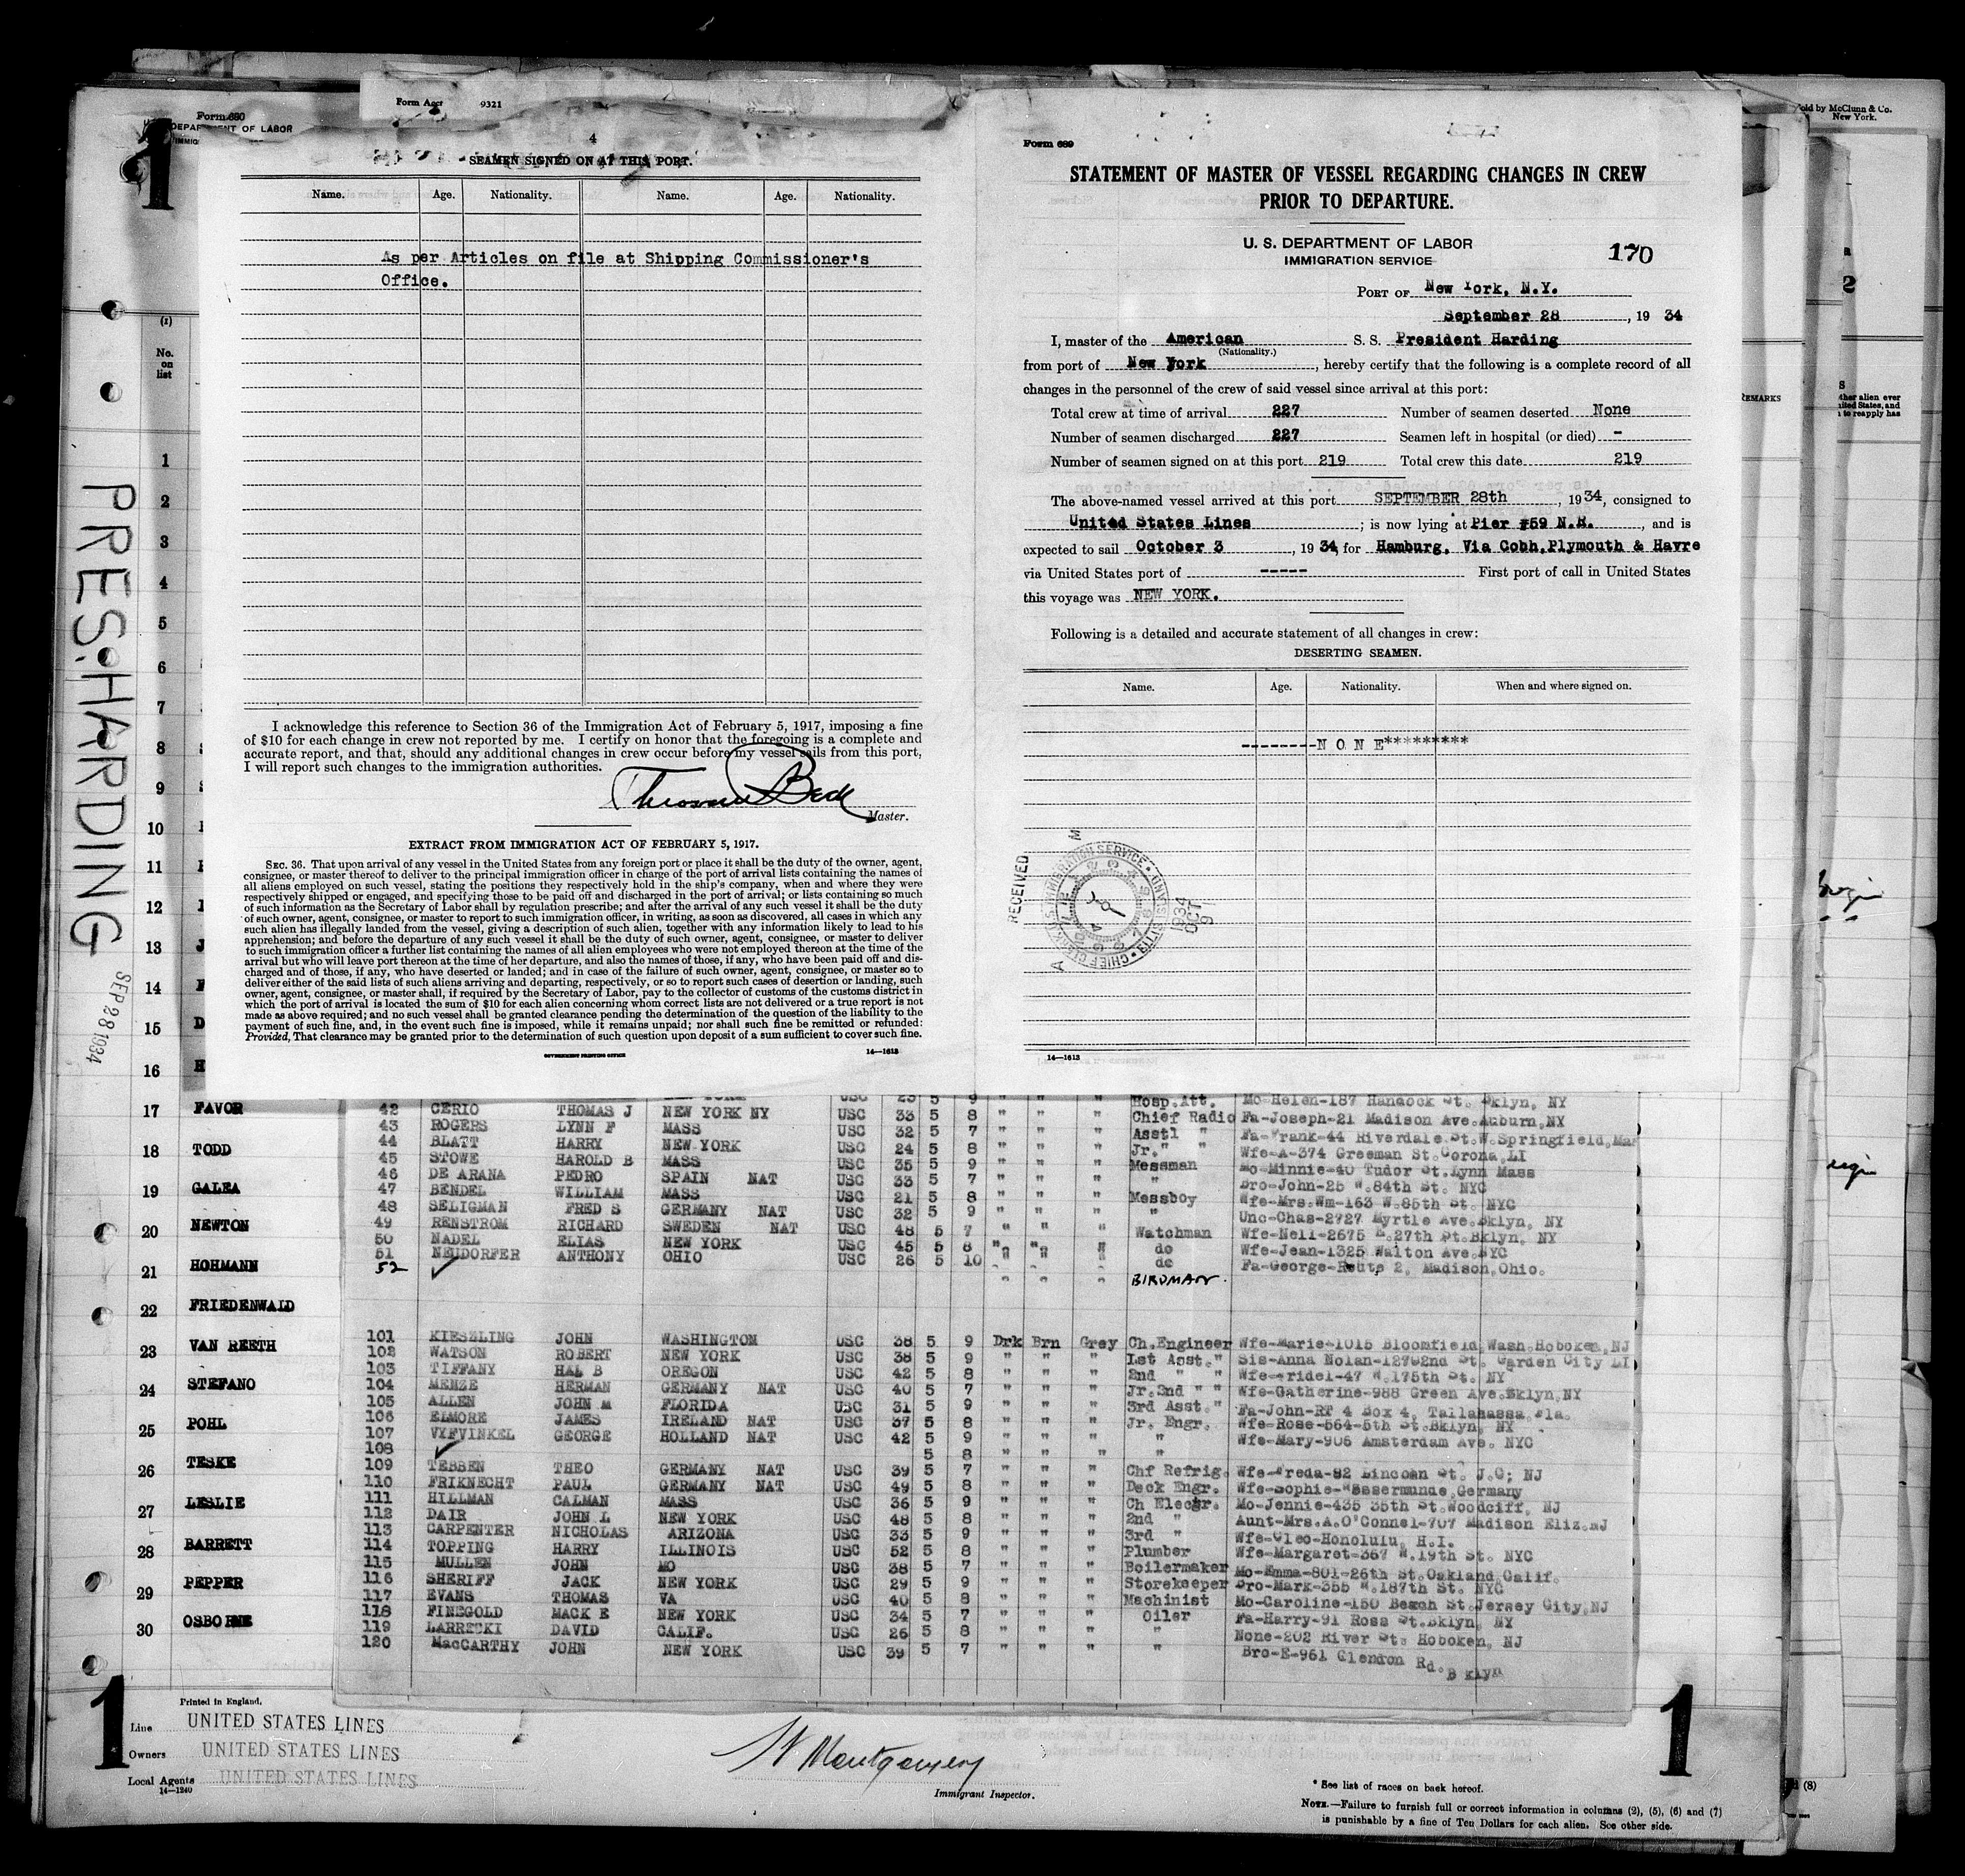 Form 680
DEPARTMENT OF LABOR
Form Acct 9321
4
SEAMEN SIGNED ON AT THIS PORT.
Name. Age. Nationality. Name. Age. Nationality.
As per Articles on file at Shipping Commissioner's
Office.
I acknowledge this reference to Section 36 of the Immigration Act of February 5, 1917, imposing a fine
of $10 for each change in crew not reported by me. I certify on honor that the foregoing is a complete and
accurate report, and that, should any additional changes in crew occur before my vessel sails from this port,
I will report such changes to the immigration authorities.
Master.
EXTRACT FROM IMMIGRATION ACT OF FEBRUARY 5, 1917.
SEC. 36. That upon arrival of any vessel in the United States from any foreign port or place it shall be the duty of the owner, agent,
consignee, or master thereof to deliver to the principal immigration officer in charge of the port of arrival lists containing the names of
all aliens employed on such vessel, stating the positions they respectively hold in the ship's company, when and where they were
respectively shipped or engaged, and specifying those to be paid off and discharged in the port of arrival; or lists containing so much
of such information as the Secretary of Labor shall by regulation prescribe; and after the arrival of any such vessel it shall be the duty
of such owner, agent, consignee, or master to report to such immigration officer, in writing, as soon as discovered, all cases in which any
such alien has illegally landed from the vessel, giving a description of such alien, together with any information likely to lead to his
apprehension; and before the departure of any such vessel it shall be the duty of such owner, agent, consignee, or master to deliver
to such immigration officer a further list containing the names of all alien employees who were not employed thereon at the time of the
arrival but who will leave port thereon at the time of her departure, and also the names of those, if any, who have been paid off and dis-
charged and of those, if any, who have deserted or landed; and in case of the failure of such owner, agent, consignee, or master so to
deliver either of the said lists of such aliens arriving and departing, respectively, or so to report such cases of desertion or landing, such
owner, agent, consignee, or master shall, if required by the Secretary of Labor, pay to the collector of customs of the customs district in
which the port of arrival is located the sum of $10 for each alien concerning whom correct lists are not delivered or a true report is not
made as above required; and no such vessel shall be granted clearance pending the determination of the question of the liability to the
payment of such fine, and, in the event such fine is imposed, while it remains unpaid; nor shall such fine be remitted or refunded:
Provided, That clearance may be granted prior to the determination of such question upon deposit of a sum sufficient to cover such fine.
GOVERNMENT PRINTING OFFICE 14—1613
Form 689
STATEMENT OF MASTER OF VESSEL REGARDING CHANGES IN CREW
PRIOR TO DEPARTURE.
U. S. DEPARTMENT OF LABOR
IMMIGRATION SERVICE
170
PORT OF New York, N.Y.
September 28, 19 34
I, master of the American S. S. President Harding
(Nationality.)
from port of New York, hereby certify that the following is a complete record of all
changes in the personnel of the crew of said vessel since arrival at this port:
Total crew at time of arrival 227 Number of seamen deserted None
Number of seamen discharged 227 Seamen left in hospital (or died) -
Number of seamen signed on at this port 219 Total crew this date 219
The above-named vessel arrived at this port SEPTEMBER 28th, 19 34, consigned to
United States Lines; is now lying at Pier #59 N.R., and is
expected to sail October 3, 19 34, for Hamburg, Via Cobh, Plymouth & Havre
via United States port of ----- First port of call in United States
this voyage was NEW YORK.
Following is a detailed and accurate statement of all changes in crew:
DESERTING SEAMEN.
Name. Age. Nationality. When and where signed on.
--------N O N E*********
RECEIVED
1934 OCT 9
14—1613
Sold by McClunn & Co.
New York.
REMARKS
2
1
(1)
No. on list
PRES. HARDING
SEP 28 1934
1
2
3
4
5
6
7
8
9
10
11
12
13
14
15
16
17 FAVOR
18 TODD
19 GALEA
20 NEWTON
21 HOHMANN
22 FRIEDENWALD
23 VAN REETH
24 STEFANO
25 POHL
26 TESKE
27 LESLIE
28 BARRETT
29 PEPPER
30 OSBORNE
42 CERIO THOMAS J NEW YORK NY USC 33 5 8 " " " Chief Radio Fa-Joseph-21 Madison Ave. Auburn, NY
43 ROGERS LYNN F MASS USC 32 5 7 " " " Asstl " Fa-Frank-44 Riverdale St. W. Springfield, Mas
44 BLATT HARRY NEW YORK USC 24 5 8 " " " Jr. " " Wfe-A-374 Greeman St. Corona, LI
45 STOWE HAROLD B MASS USC 35 5 9 " " " Messman Mo-Minnie-40 Tudor St. Lynn Mass
46 DE ARANA PEDRO SPAIN NAT USC 33 5 7 " " " " Bro-John-25 W. 84th St. NYC
47 BENDEL WILLIAM MASS USC 21 5 8 " " " Messboy Wfe-Mrs. Wm-163 W. 85th St. NYC
48 SELIGMAN FRED S GERMANY NAT USC 32 5 9 " " " " Unc-Chas-2727 Myrtle Ave. Bklyn, NY
49 RENSTROM RICHARD SWEDEN NAT USC 48 5 7 " " " Watchman Wfe-Nell-2675 E. 27th St. Bklyn, NY
50 NADEL ELIAS NEW YORK USC 45 5 8 " " " do Wfe-Jean-1325 Walton Ave. NYC
51 NEUDORFER ANTHONY OHIO USC 26 5 10 " " " do Fa-George-Route 2, Madison, Ohio.
52 BIRDMAN.
101 KIESZLING JOHN WASHINGTOM USC 38 5 9 Drk Brn Grey Ch. Engineer Wfe-Marie-1015 Bloomfield Wash. Hoboken, NJ
102 WATSON ROBERT NEW YORK USC 38 5 9 " " " 1st Asst. " Sis-Anna Nolan-12792nd St. Garden City LI
103 TIFFANY HAL B OREGON USC 42 5 8 " " " 2nd " " Wfe-Fridel-47 W. 175th St. NY
104 MENZE HERMAN GERMANY NAT USC 40 5 7 " " " Jr. 2nd " " Wfe-Catherine-988 Green Ave. Bklyn, NY
105 ALLEN JOHN M FLORIDA USC 31 5 9 " " " 3rd Asst. " Fa-John-RT 4 Box 4, Tallahassa, Fla.
106 ELMORE JAMES IRELAND NAT USC 37 5 8 " " " Jr. Engr. Wfe-Rose-564-5th St. Bklyn, NY
107 VYFVINKEL GEORGE HOLLAND NAT USC 42 5 9 " " " " Wfe-Mary-906 Amsterdam Ave. NYC
108 5 8 " " " "
109 TEBBEN THEO GERMANY NAT USC 39 5 7 " " " Chf Refrig. Wfe-Freda-82 Lincoan St. J.C; NJ
110 FRIKNECHT PAUL GERMANY NAT USC 49 5 8 " " " Deck Engr. Wfe-Sophie-Wesermunde, Germany
111 HILLMAN CALMAN MASS USC 36 5 9 " " " Ch Elecgr. Mo-Jennie-435 35th St. Woodcliff, NJ
112 DAIR JOHN L NEW YORK USC 48 5 8 " " " 2nd " Aunt-Mrs. A. O'Connel-707 Madison Eliz. NJ
113 CARPENTER NICHOLAS ARIZONA USC 33 5 9 " " " 3rd " Wfe-Cleo-Honolulu, H.I.
114 TOPPING HARRY ILLINOIS USC 52 5 8 " " " Plumber Wfe-Margaret-367 W. 19th St. NYC
115 MULLEN JOHN MO USC 38 5 7 " " " Boilermaker Mo-Emma-801-26th St. Oakland, Calif.
116 SHERIFF JACK NEW YORK USC 29 5 9 " " " Storekeeper Bro-Mark-355 W. 187th St. NYC
117 EVANS THOMAS VA USC 40 5 8 " " " Machinist Mo-Caroline-150 Beach St. Jersey City, NJ
118 FINEGOLD MACK E NEW YORK USC 34 5 7 " " " Oiler Fa-Harry-91 Ross St. Bklyn, NY
119 LARRECKI DAVID CALIF. USC 26 5 8 " " " " None-202 River St. Hoboken, NJ
120 MacCARTHY JOHN NEW YORK USC 39 5 7 " " " " Bro-E-961 Glendon Rd. Bklyn
Printed in England.
Line UNITED STATES LINES
Owners UNITED STATES LINES
Local Agents UNITED STATES LINES
14—1240
1
Montgomery
Immigrant Inspector.
1
* See list of races on back hereof.
NOTE.—Failure to furnish full or correct information in columns (2), (5), (6) and (7)
is punishable by a fine of Ten Dollars for each alien. See other side.
(8)